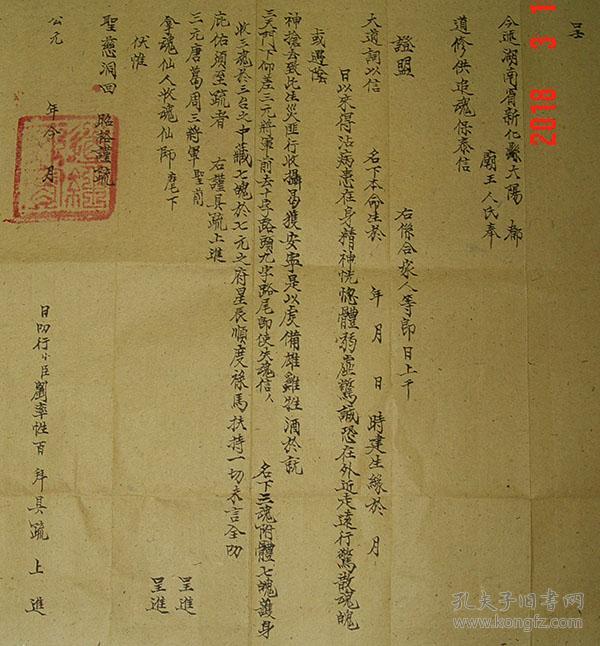 呈
今處湖南省新化縣大陽 都
廟王人民奉
道修供追魂保泰信
右係合家人等即日上干
證盟
大道詞以信 名下本命生於 年 月 日 時建生緣於 月
日以來得沾病患在身精神恍惚體弱虛驚誠恐在外近走遠行驚散魂魄
或遇陰
神搶去致此生災匪行收攝曷獲安寧是以虔備雄雞牲酒於託
三天門下仰差三元將軍前去十字路頭九字路尾即使失魂信人 名下三魂附體七魄護身
收三魂於三台之中藏七魄於七元之府星辰順度祿馬扶持一切未言全叨
庇佑須至疏者 右謹具疏上進
三元唐葛周三將軍聖前 呈進
拿魂仙人收魂仙師麾下 呈進
伏惟
聖慈洞回 昭格謹疏
公元 年 今 月
日叨行小臣劉奉牲百拜具疏上進
2018 3 1
孔夫子旧书网
www.kongfz.com